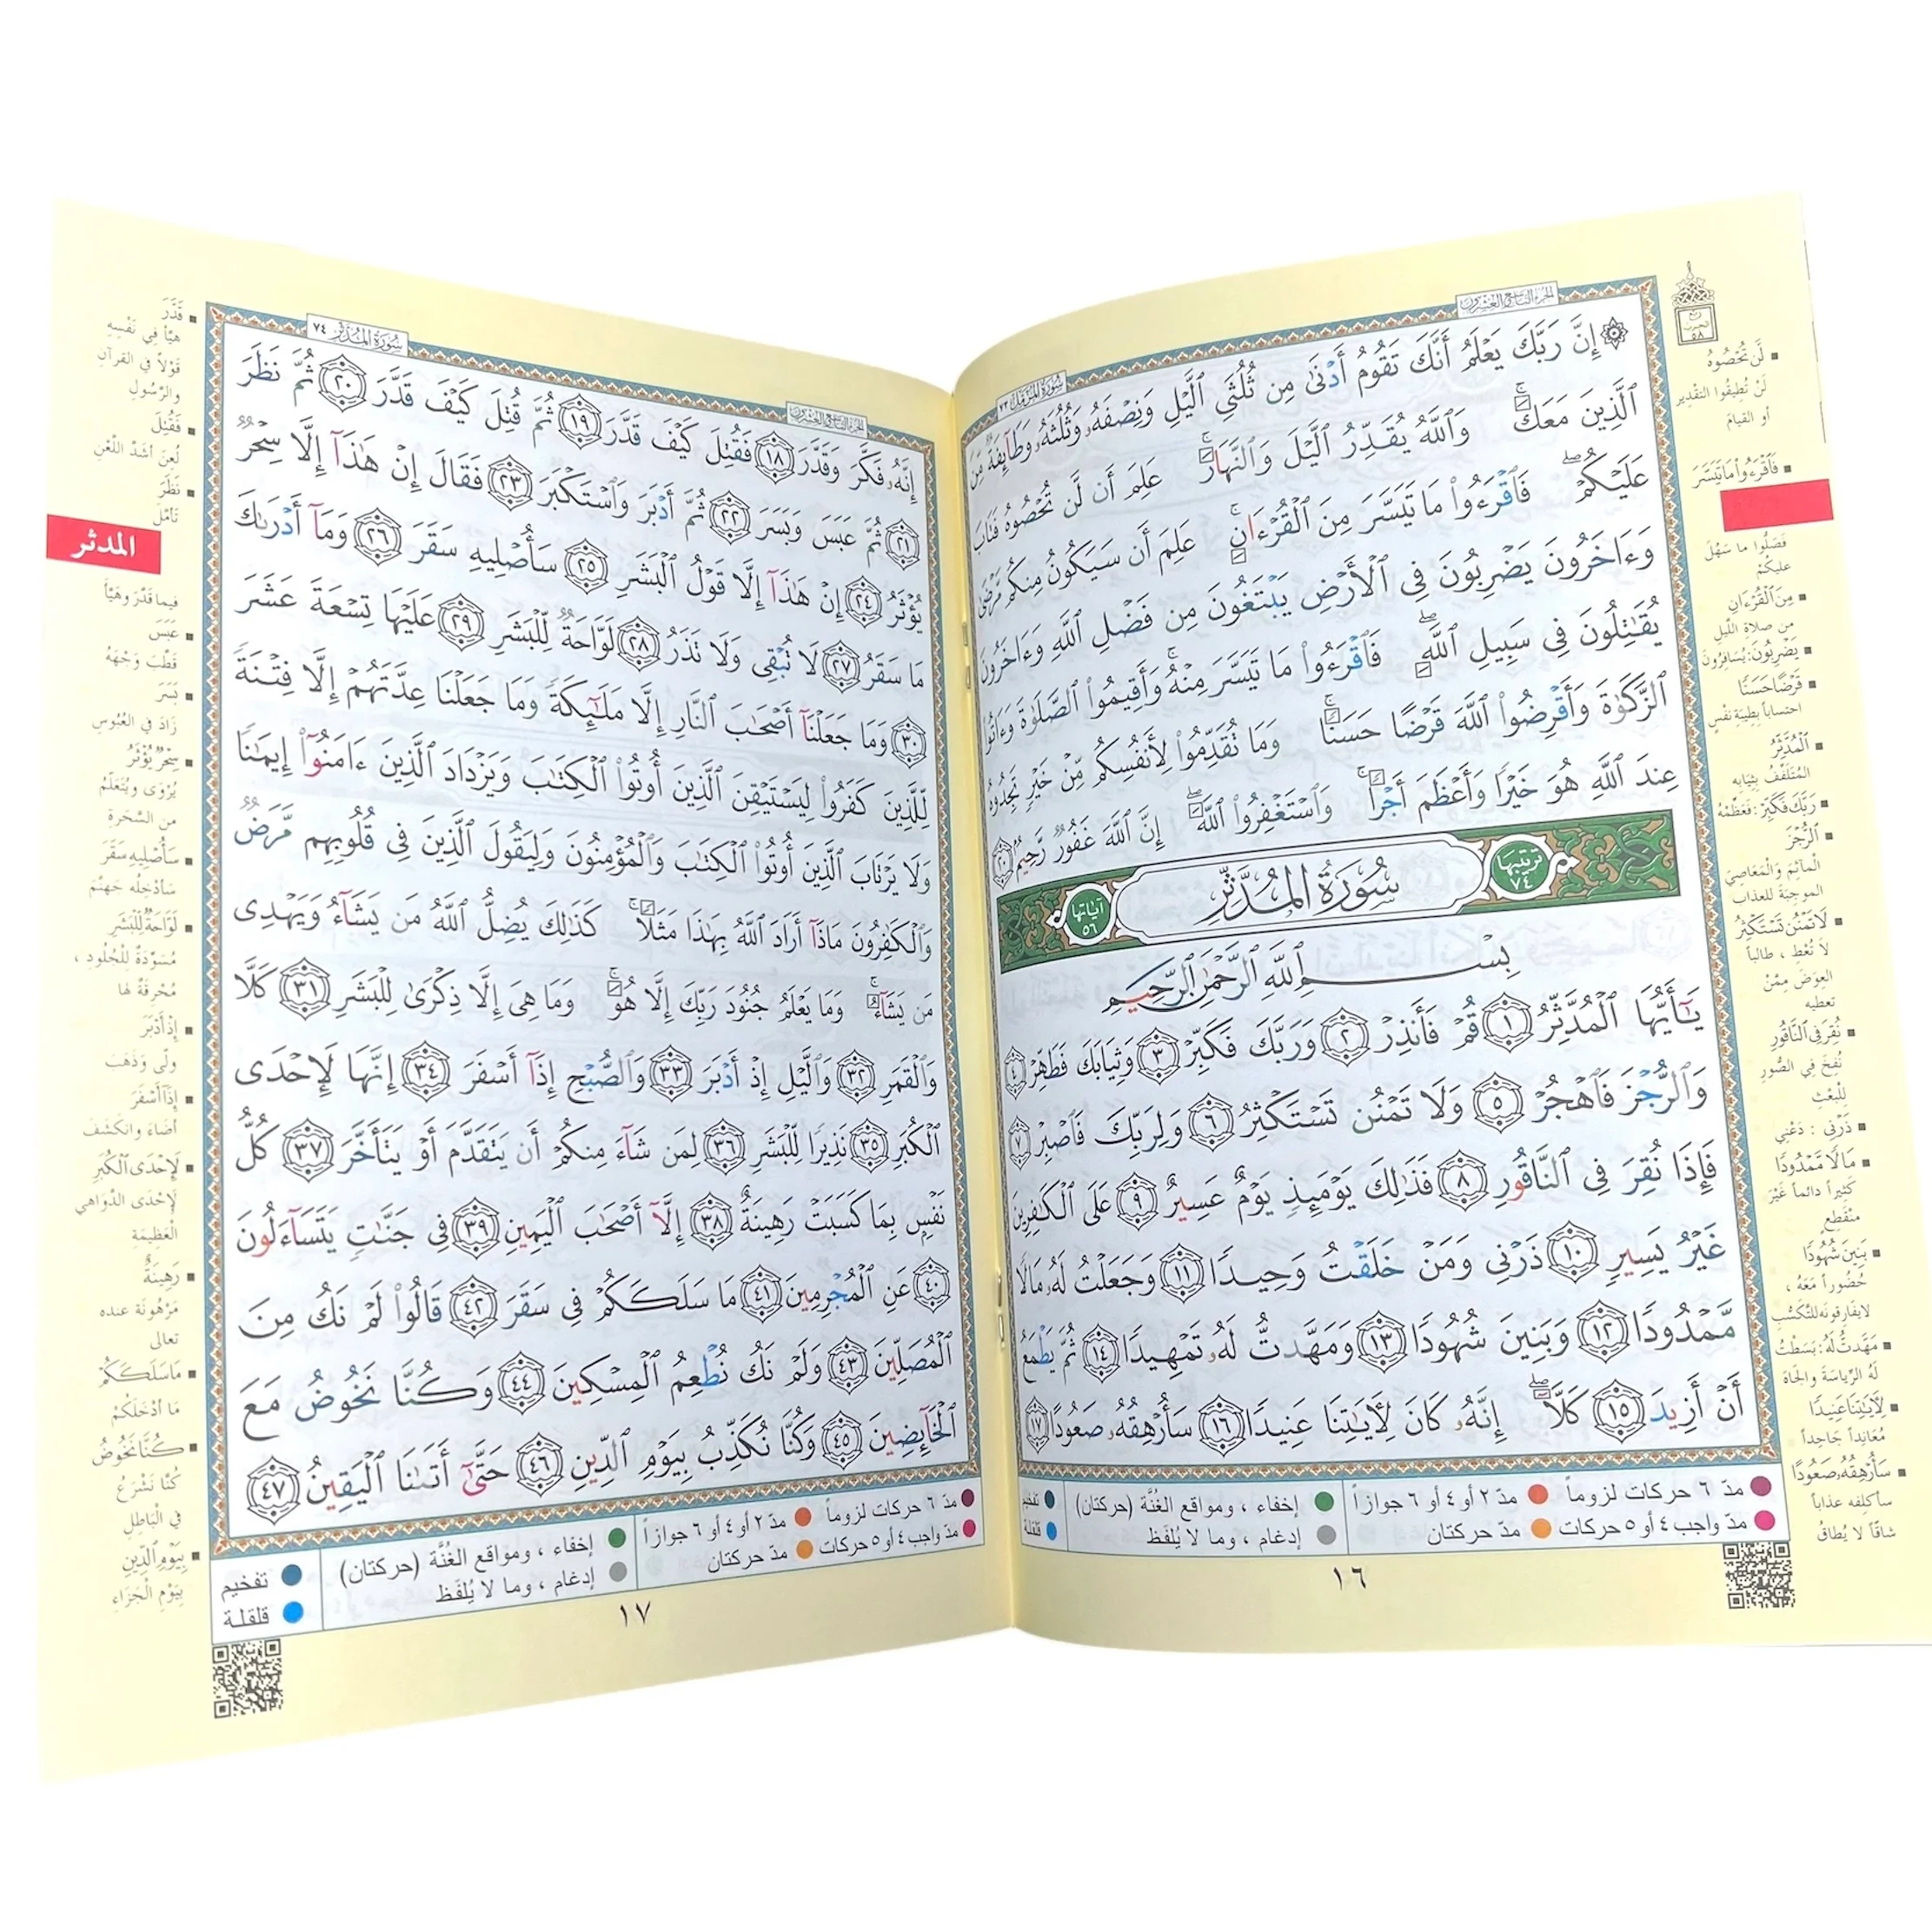 الجزء التاسع والعشرون
سورة المزمل ٧٣
إِنَّ رَبَّكَ يَعْلَمُ أَنَّكَ تَقُومُ أَدْنَىٰ مِن ثُلُثَيِ ٱلَّيْلِ وَنِصْفَهُۥ وَثُلُثَهُۥ وَطَآئِفَةٌ مِّنَ
ٱلَّذِينَ مَعَكَ ۚ وَٱللَّهُ يُقَدِّرُ ٱلَّيْلَ وَٱلنَّهَارَ ۚ عَلِمَ أَن لَّن تُحْصُوهُ فَتَابَ
عَلَيْكُمْ ۖ فَٱقْرَءُوا۟ مَا تَيَسَّرَ مِنَ ٱلْقُرْءَانِ ۚ عَلِمَ أَن سَيَكُونُ مِنكُم مَّرْضَىٰ
وَءَاخَرُونَ يَضْرِبُونَ فِى ٱلْأَرْضِ يَبْتَغُونَ مِن فَضْلِ ٱللَّهِ وَءَاخَرُونَ
يُقَـٰتِلُونَ فِى سَبِيلِ ٱللَّهِ ۖ فَٱقْرَءُوا۟ مَا تَيَسَّرَ مِنْهُ ۚ وَأَقِيمُوا۟ ٱلصَّلَوٰةَ وَءَاتُوا۟
ٱلزَّكَوٰةَ وَأَقْرِضُوا۟ ٱللَّهَ قَرْضًا حَسَنًا ۚ وَمَا تُقَدِّمُوا۟ لِأَنفُسِكُم مِّنْ خَيْرٍ تَجِدُوهُ
عِندَ ٱللَّهِ هُوَ خَيْرًا وَأَعْظَمَ أَجْرًا ۚ وَٱسْتَغْفِرُوا۟ ٱللَّهَ ۖ إِنَّ ٱللَّهَ غَفُورٌ رَّحِيمٌ ٢٠
ترتيبها ٧٤ سُورَةُ المُدَّثِّر آياتها ٥٦
بِسْمِ ٱللَّهِ ٱلرَّحْمَـٰنِ ٱلرَّحِيمِ
يَـٰٓأَيُّهَا ٱلْمُدَّثِّرُ ١ قُمْ فَأَنذِرْ ٢ وَرَبَّكَ فَكَبِّرْ ٣ وَثِيَابَكَ فَطَهِّرْ ٤
وَٱلرُّجْزَ فَٱهْجُرْ ٥ وَلَا تَمْنُن تَسْتَكْثِرُ ٦ وَلِرَبِّكَ فَٱصْبِرْ ٧
فَإِذَا نُقِرَ فِى ٱلنَّاقُورِ ٨ فَذَٰلِكَ يَوْمَئِذٍ يَوْمٌ عَسِيرٌ ٩ عَلَى ٱلْكَـٰفِرِينَ
غَيْرُ يَسِيرٍ ١٠ ذَرْنِى وَمَنْ خَلَقْتُ وَحِيدًا ١١ وَجَعَلْتُ لَهُۥ مَالًا
مَّمْدُودًا ١٢ وَبَنِينَ شُهُودًا ١٣ وَمَهَّدتُّ لَهُۥ تَمْهِيدًا ١٤ ثُمَّ يَطْمَعُ
أَنْ أَزِيدَ ١٥ كَلَّآ ۖ إِنَّهُۥ كَانَ لِـَٔايَـٰتِنَا عَنِيدًا ١٦ سَأُرْهِقُهُۥ صَعُودًا ١٧
لَّن تُحْصُوهُ
لَنْ تُطِيقُوا التقْدِير
أو القيام
فَٱقْرَءُوا۟ مَا تَيَسَّرَ
فَصَلُّوا ما سَهُلَ
عليكُمْ
مِنَ ٱلْقُرْءَانِ
من صلاة الليل
يَضْرِبُونَ: يُسَافِرُونَ
قَرْضًا حَسَنًا
احتساباً بِطِيبَةِ نَفْسٍ
ٱلْمُدَّثِّرُ
المُتَلَفِّفُ بِثِيَابِه
رَبَّكَ فَكَبِّرْ: فَعَظِّمْهُ
ٱلرُّجْزَ
المآثِمَ وَالْمَعَاصِيَ
الموجِبَةَ للعذاب
لَا تَمْنُن تَسْتَكْثِرُ
لا تُعْطِ ، طالباً
العِوَضَ مِمَّنْ
تعطيه
نُقِرَ فِى ٱلنَّاقُورِ
نُفِخَ فِي الصُّورِ
لِلْبَعْثِ
ذَرْنِى : دَعْنِي
مَالًا مَّمْدُودًا
كَثيراً دائماً غَيْرَ
منْقَطِعٍ
بَنِينَ شُهُودًا
حُضُوراً مَعَهُ ،
لايفَارِقونَه للتكَسُّبِ
مَهَّدتُّ لَهُ: بَسَطْتُ
لَهُ الرِّيَاسَةَ والجَاهَ
لِـَٔايَـٰتِنَا عَنِيدًا
مُعَانِداً جَاحِداً
سَأُرْهِقُهُۥ صَعُودًا
سأكلفه عذاباً
شاقّاً لا يُطَاقُ
مدّ ٦ حركات لزوماً مدّ ٢ أو ٤ أو ٦ جوازاً إخفاء ، ومواقع الغُنَّة (حركتان) تفخيم
مدّ واجب ٤ أو ٥ حركات مدّ حركتان إدغام ، وما لا يُلفَظ قلقلة
١٦
الجزء التاسع والعشرون
سورة المدثر ٧٤
إِنَّهُۥ فَكَّرَ وَقَدَّرَ ١٨ فَقُتِلَ كَيْفَ قَدَّرَ ١٩ ثُمَّ قُتِلَ كَيْفَ قَدَّرَ ٢٠ ثُمَّ نَظَرَ
٢١ ثُمَّ عَبَسَ وَبَسَرَ ٢٢ ثُمَّ أَدْبَرَ وَٱسْتَكْبَرَ ٢٣ فَقَالَ إِنْ هَـٰذَآ إِلَّا سِحْرٌ
يُؤْثَرُ ٢٤ إِنْ هَـٰذَآ إِلَّا قَوْلُ ٱلْبَشَرِ ٢٥ سَأُصْلِيهِ سَقَرَ ٢٦ وَمَآ أَدْرَىٰكَ
مَا سَقَرُ ٢٧ لَا تُبْقِى وَلَا تَذَرُ ٢٨ لَوَّاحَةٌ لِّلْبَشَرِ ٢٩ عَلَيْهَا تِسْعَةَ عَشَرَ
٣٠ وَمَا جَعَلْنَآ أَصْحَـٰبَ ٱلنَّارِ إِلَّا مَلَـٰٓئِكَةً ۙ وَمَا جَعَلْنَا عِدَّتَهُمْ إِلَّا فِتْنَةً
لِّلَّذِينَ كَفَرُوا۟ لِيَسْتَيْقِنَ ٱلَّذِينَ أُوتُوا۟ ٱلْكِتَـٰبَ وَيَزْدَادَ ٱلَّذِينَ ءَامَنُوٓا۟ إِيمَـٰنًا
وَلَا يَرْتَابَ ٱلَّذِينَ أُوتُوا۟ ٱلْكِتَـٰبَ وَٱلْمُؤْمِنُونَ وَلِيَقُولَ ٱلَّذِينَ فِى قُلُوبِهِم مَّرَضٌ
وَٱلْكَـٰفِرُونَ مَاذَآ أَرَادَ ٱللَّهُ بِهَـٰذَا مَثَلًا ۚ كَذَٰلِكَ يُضِلُّ ٱللَّهُ مَن يَشَآءُ وَيَهْدِى
مَن يَشَآءُ ۚ وَمَا يَعْلَمُ جُنُودَ رَبِّكَ إِلَّا هُوَ ۚ وَمَا هِىَ إِلَّا ذِكْرَىٰ لِلْبَشَرِ ٣١ كَلَّا
وَٱلْقَمَرِ ٣٢ وَٱلَّيْلِ إِذْ أَدْبَرَ ٣٣ وَٱلصُّبْحِ إِذَآ أَسْفَرَ ٣٤ إِنَّهَا لَإِحْدَى
ٱلْكُبَرِ ٣٥ نَذِيرًا لِّلْبَشَرِ ٣٦ لِمَن شَآءَ مِنكُمْ أَن يَتَقَدَّمَ أَوْ يَتَأَخَّرَ ٣٧ كُلُّ
نَفْسٍۭ بِمَا كَسَبَتْ رَهِينَةٌ ٣٨ إِلَّآ أَصْحَـٰبَ ٱلْيَمِينِ ٣٩ فِى جَنَّـٰتٍ يَتَسَآءَلُونَ
٤٠ عَنِ ٱلْمُجْرِمِينَ ٤١ مَا سَلَكَكُمْ فِى سَقَرَ ٤٢ قَالُوا۟ لَمْ نَكُ مِنَ
ٱلْمُصَلِّينَ ٤٣ وَلَمْ نَكُ نُطْعِمُ ٱلْمِسْكِينَ ٤٤ وَكُنَّا نَخُوضُ مَعَ
ٱلْخَآئِضِينَ ٤٥ وَكُنَّا نُكَذِّبُ بِيَوْمِ ٱلدِّينِ ٤٦ حَتَّىٰٓ أَتَىٰنَا ٱلْيَقِينُ ٤٧
قَدَّرَ
هيَّأ فِي نَفْسِهِ
قَوْلاً في القرآنِ
والرَّسُولِ
فَقُتِلَ
لُعِنَ أشدَّ اللَّعْنِ
نَظَرَ
تَأمَّل
المدثر
فيما قَدَّرَ وهَيَّأَ
عَبَسَ
قَطَّبَ وَجْهَهُ
بَسَرَ
زَادَ في العُبُوسِ
سِحْرٌ يُؤْثَرُ
يُرْوَى ويُتَعَلَّمُ
من السَّحَرةِ
سَأُصْلِيهِ سَقَرَ
سَأدْخِلُه جَهنَّمَ
لَوَّاحَةٌ لِّلْبَشَرِ
مُسَوِّدَةٌ لِلْجُلودِ ،
مُحْرِقَةٌ لها
إِذْ أَدْبَرَ
ولّى وَذَهَبَ
إِذَآ أَسْفَرَ
أضَاءَ وانكَشَفَ
لَإِحْدَى ٱلْكُبَرِ
لَإحْدَى الدَّواهي
الْعَظِيمَةِ
رَهِينَةٌ
مَرْهُونَة عنده
تعالى
مَا سَلَكَكُمْ
مَا أدْخَلَكُمْ
كُنَّا نَخُوضُ
كُنَّا نَشْرَعُ
في البَاطِلِ
بِيَوْمِ ٱلدِّينِ
بِيَوْمِ الْجَزَاءِ
مدّ ٦ حركات لزوماً مدّ ٢ أو ٤ أو ٦ جوازاً إخفاء ، ومواقع الغُنَّة (حركتان) تفخيم
مدّ واجب ٤ أو ٥ حركات مدّ حركتان إدغام ، وما لا يُلفَظ قلقلة
١٧